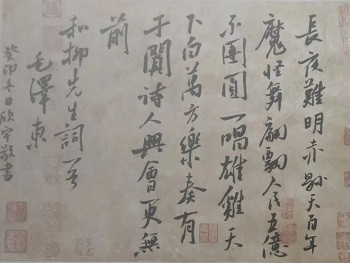 長夜難明赤縣天百年
魔怪舞翩飄人民五億
不團圓一唱雄雞天
下白萬方樂奏有
于闐诗人興會更無
前
和柳先生詞一首
毛澤東
癸卯冬日欣宇敬書